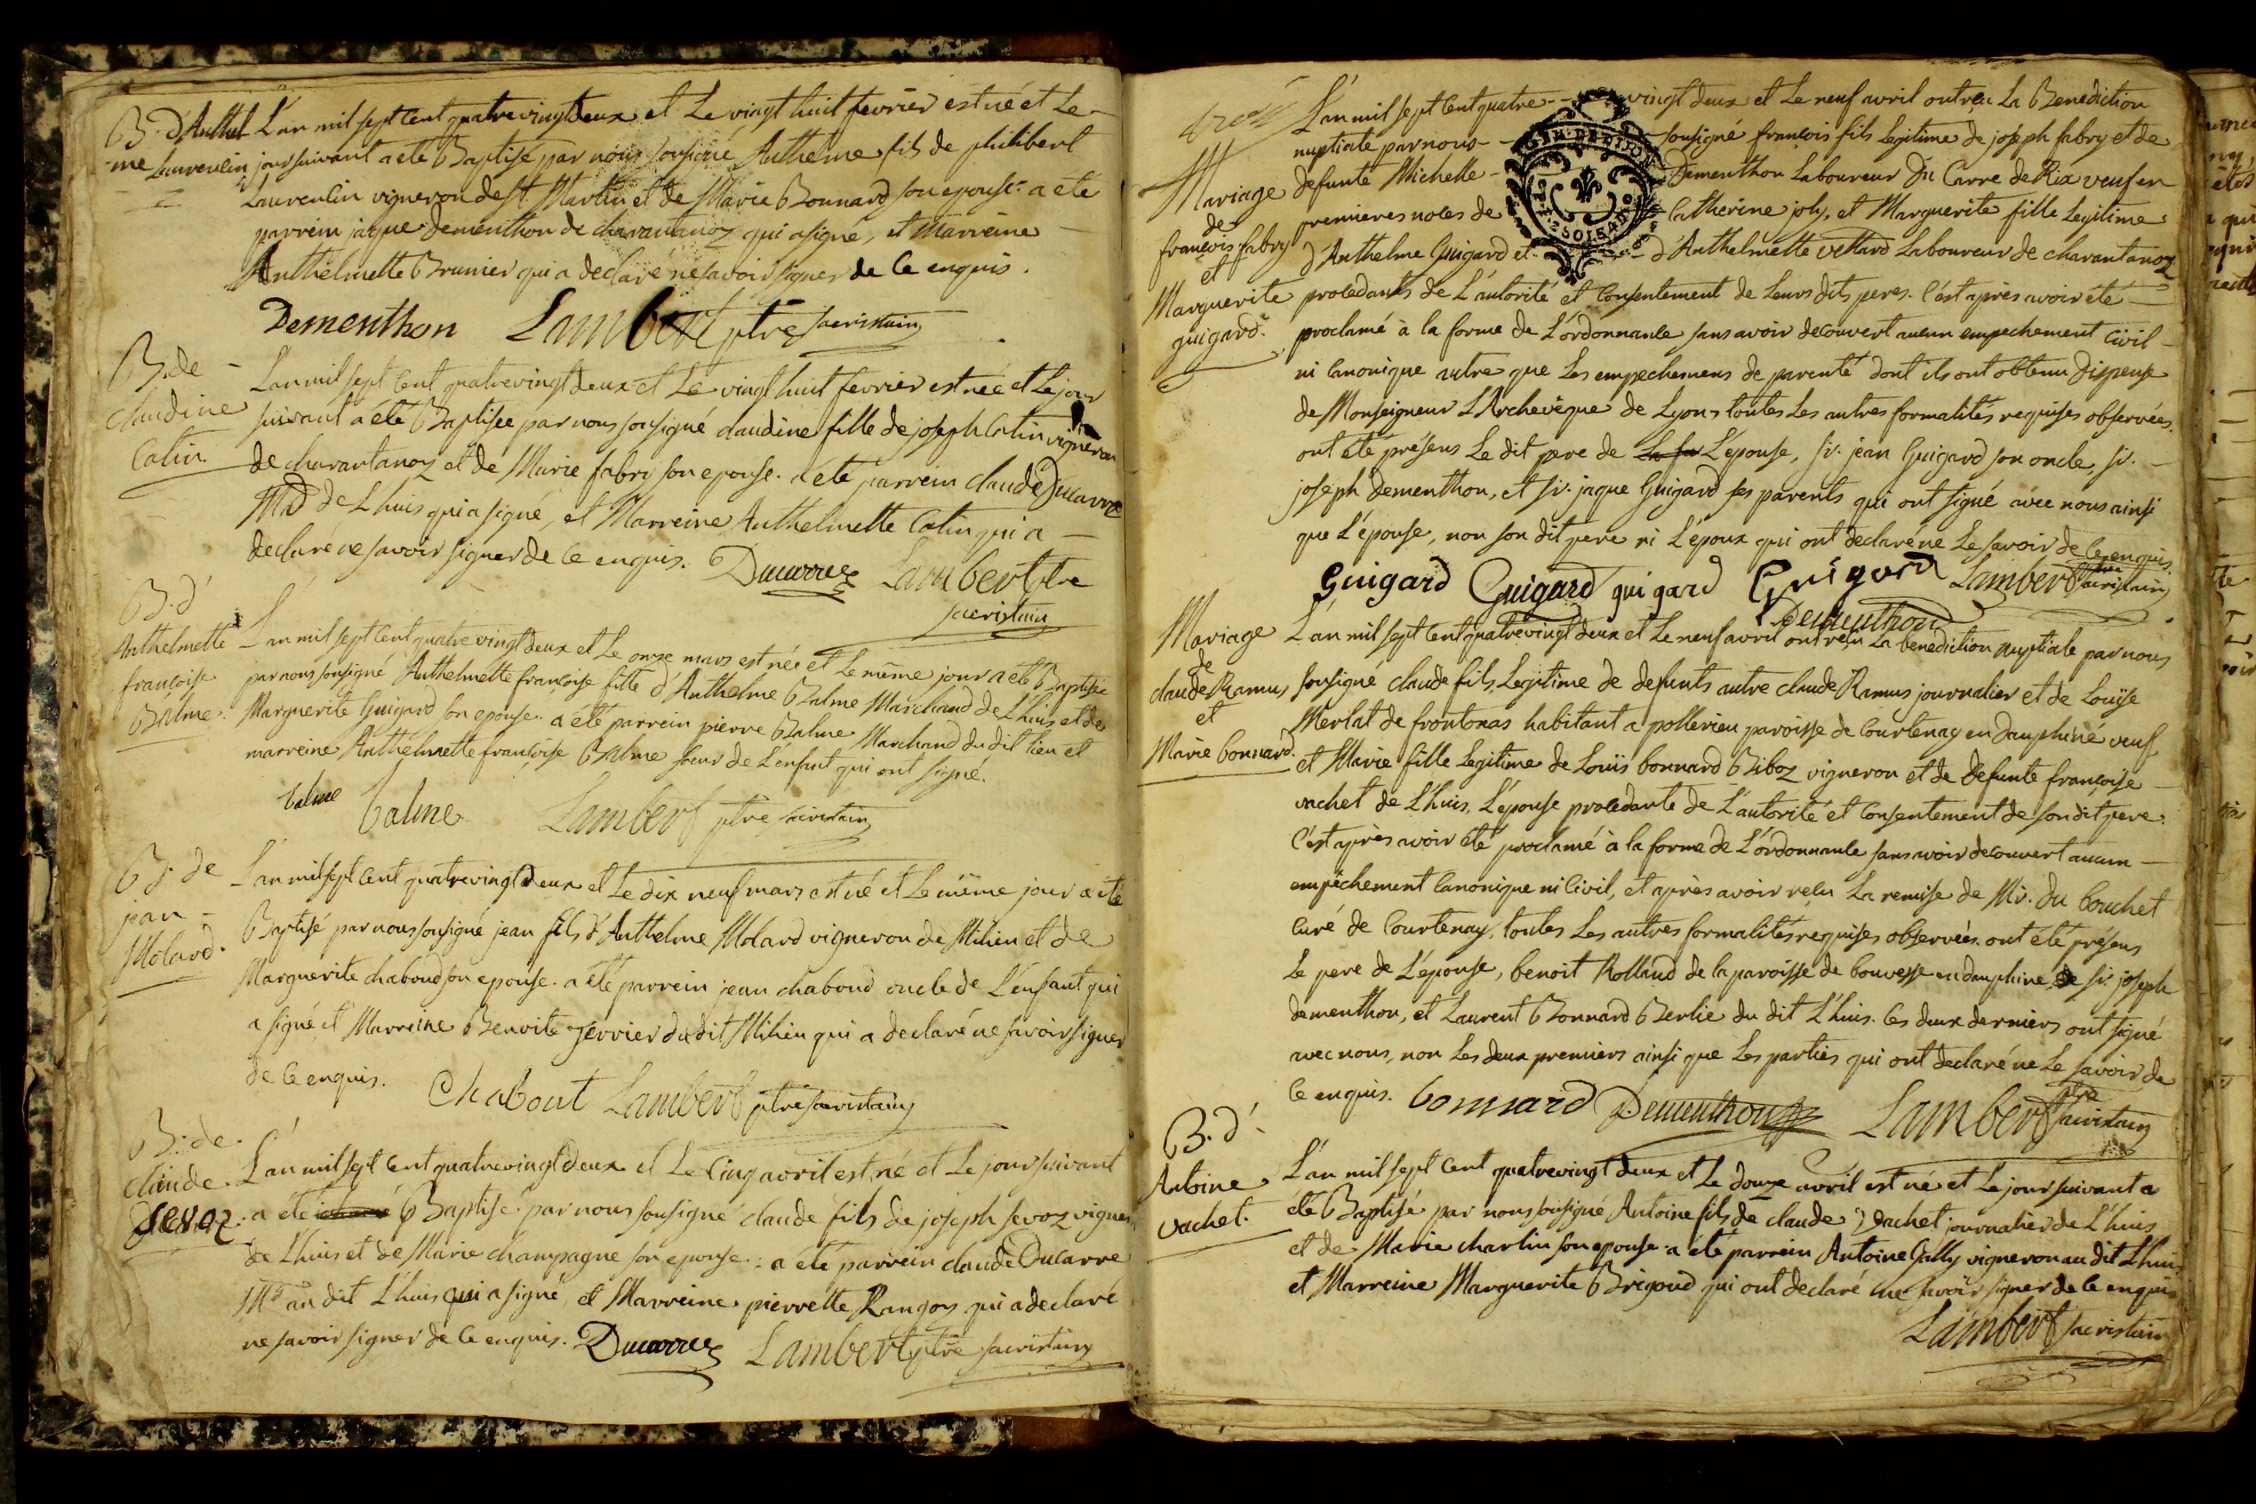 B. d'Anthel
-me Laurencin
L'an mil sept cent quatrevingt deux et Le vingt huit fevrier est né et Le
jour suivant a été Baptisé par nous soussigné Anthelme fils de philibert
Laurencin vigneron de St Martin et de Marie Bonnard son epouse. a été
parrein jaque dementhon de charantanoz qui a signé, et Marreine
Anthelmette Brunier qui a declaré ne savoir signer de ce enquis.
Dementhon Lambert ptre sacristain
B. de
claudine
Catin
L'an mil sept cent quatrevingt deux et Le vingt huit fevrier est née et Le jour
suivant a été Baptisée par nous soussigné claudine fille de joseph Catin vigneron
de charantanoz et de Marie fabry son epouse. a été parrein claude Ducarre
Md de L'huis qui a signé, et Marreine Anthelmette Catin qui a
declaré ne savoir signer de ce enquis. Ducarre Lambert ptre
sacristain
B. d'
Anthelmette
françoise
Balme.
L'an mil sept cent quatre vingt deux et Le onze mars est née et Le même jour a été Baptisée
par nous soussigné Anthelmette françoise fille d'Anthelme Balme Marchand de L'huis et de
Marguerite Guigard son epouse. a été parrein pierre Balme Marchand du dit lieu et
marreine Anthelmette françoise Balme soeur de L'enfant qui ont signé.
balme balme Lambert ptre sacristain
B. de
jean
Molard.
L'an mil sept cent quatrevingt deux et Le dix neuf mars est né et Le même jour a été
Baptisé par nous soussigné jean fils d'Anthelme Molard vigneron de Milieu et de
Marguerite chaboud son epouse. a été parrein jean chaboud oncle de L'enfant qui
a signé et Marreine Benoite ferrier du dit Milieu qui a declaré ne savoir signer
de ce enquis. Chabout Lambert ptre sacristain
B. de
claude
sevoz.
L'an mil sept cent quatrevingt deux et Le cinq avril est né et Le jour suivant
a été Baptisé par nous soussigné claude fils de joseph sevoz vigneron
de L'huis et de Marie champagne son epouse. a été parrein claude Ducarre
Md au dit L'huis qui a signé, et Marreine pierrette Rangoz qui a declaré
ne savoir signer de ce enquis. Ducarre Lambert ptre sacristain
Mariage
de
françois fabry
et
Marguerite
guigard.
L'an mil sept cent quatre vingt deux et Le neuf avril ont reçu La Benediction
nuptiale par nous soussigné françois fils Legitime de joseph fabry et de
defunte Michelle Dementhon Laboureur Du Carre de Rix veuf en
premieres noces de Catherine joly, et Marguerite fille Legitime
d'Anthelme Guigard et d'Anthelmette vettard Laboureur de charantanoz
procedants de L'autorité et consentement de Leurs dits peres. C'est après avoir été
proclamé à la forme de L'ordonnance sans avoir decouvert aucun empechement civil
ni canonique autre que Les empechemens de parenté dont ils ont obtenu dispense
de Monseigneur L'Archevêque de Lyon, toutes Les autres formalités requises observées.
ont été présens Le dit pere de L'épouse, sr. jean Guigard son oncle, sr.
joseph dementhon, et sr. jaque Guigard ses parents qui ont signé avec nous ainsi
que L'épouse, non son dit pere ni L'époux qui ont declaré ne Le savoir de ce enquis.
Guigard Guigard guigard Guigard Lambert ptre sacristain
Dementhon
Mariage
de
claude Ramus
et
Marie bonnard.
L'an mil sept cent quatrevingt deux et Le neuf avril ont reçu La benediction nuptiale par nous
soussigné claude fils Legitime de defunts autre claude Ramus journalier et de Louise
Merlat de frontonas habitant a pollerieu paroisse de Courtenay en dauphiné veuf
et Marie fille Legitime de Louis bonnard Biboz vigneron et de defunte françoise
vachet de L'huis. L'épouse procedante de L'autorité et consentement de son dit pere.
C'est après avoir été proclamé à la forme de L'ordonnance sans avoir decouvert aucun
empêchement canonique ni civil, et après avoir reçu La remise de Mr. du bouchet
curé de Courtenay, toutes Les autres formalités requises observées. ont été présens
Le pere de L'épouse, benoit Rolland de la paroisse de bouvesse en dauphiné, sr. joseph
dementhon, et Laurent Bonnard Berlie du dit L'huis. Les deux derniers ont signé
avec nous, non Les deux premiers ainsi que Les parties qui ont declaré ne Le savoir de
ce enquis. bonnard Dementhon Lambert ptre sacristain
B. d'
Antoine
vachet.
L'an mil sept cent quatrevingt deux et Le douze avril est né et Le jour suivant a
été Baptisé par nous soussigné Antoine fils de claude vachet journalier de L'huis
et de Marie charlin son epouse. a été parrein Antoine Gally vigneron au dit L'huis
et Marreine Marguerite Brigoud qui ont declaré ne savoir signer de ce enquis
Lambert sacristain